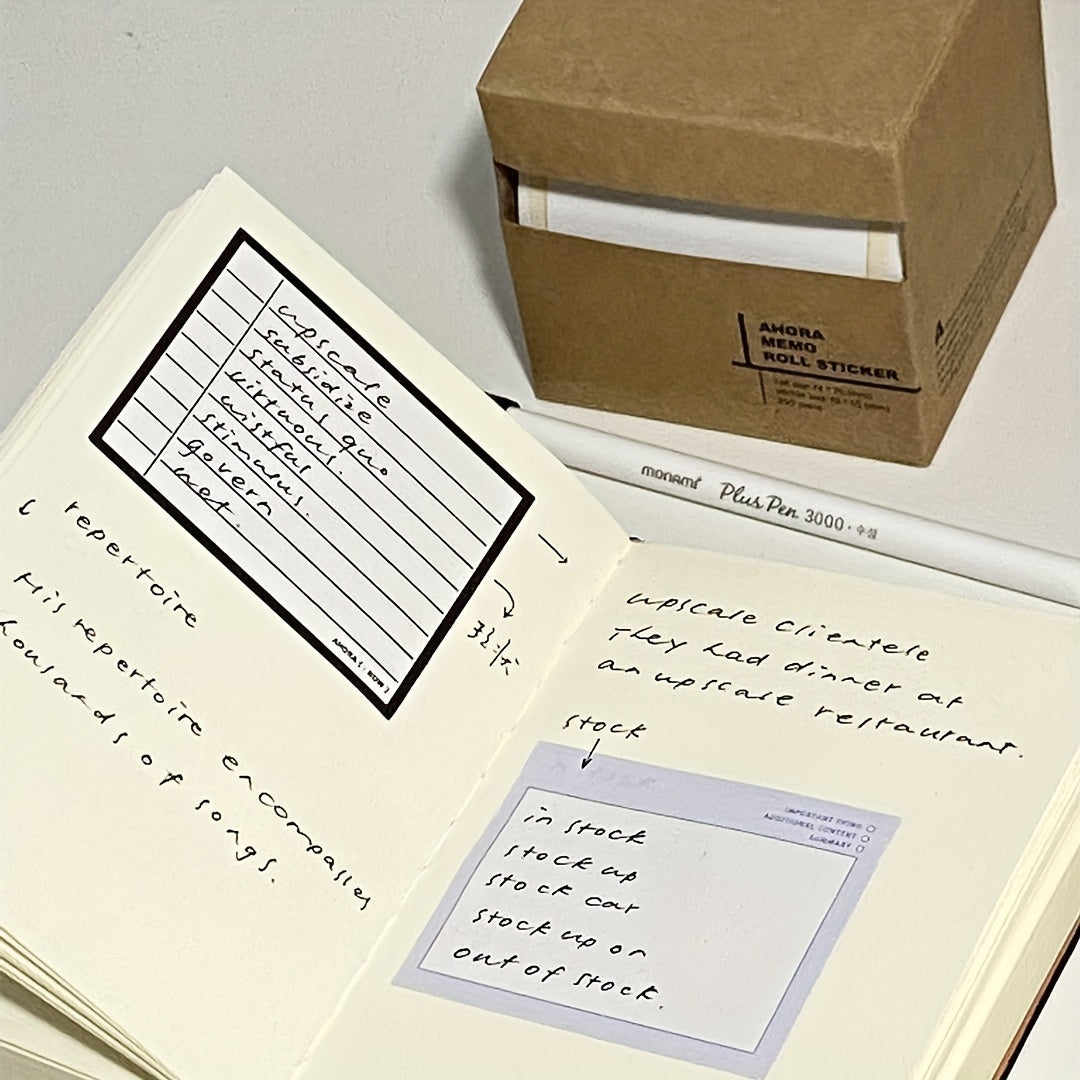 AHORA
MEMO
ROLL STICKER
monami Plus Pen 3000 · 수성
upscale
subsidize
status quo
virtuous.
wistful
stimulus.
govern
AHORA ( : NOW )
repertoire
His repertoire encompasses
thousands of songs.
upscale clientele
They had dinner at
an upscale restaurant.
stock
IMPORTANT THING
ADDITIONAL CONTENT
SUMMARY
in stock
stock up
stock car
stock up on
out of stock.